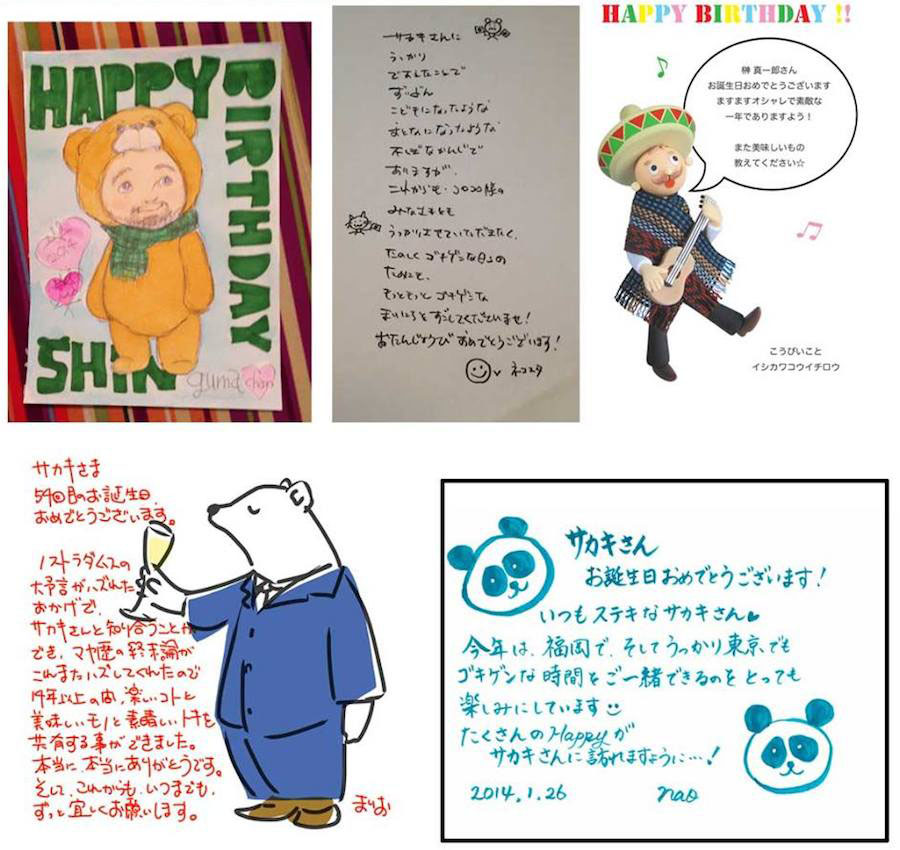 HAPPY
BIRTHDAY
SHIN
guma chan
サカキさんに
うっかり
でましたことで
ずいぶん
こどもになったような
おとなになったような
不思議なかんじで
ありますが、
これからも・コロコロ様の
みなさまとも
うっかりさせていただきたく、
たのしくゴキゲンな日々の
ためにも、
もっともっとゴキゲンな
まいにちをすごしてくださいませ!
おたんじょうびおめでとうございます!
HAPPY BIRTHDAY !!
榊 真一郎さん
お誕生日おめでとうございます
ますますオシャレで素敵な
一年でありますよう!
また美味しいもの
教えてください☆
こうぴいこと
イシカワコウイチロウ
サカキさま
54回目のお誕生日、
おめでとうございます。
ノストラダムスの
大予言がハズれた
おかげで、
サカキさんと知り合うことが
でき、マヤ暦の終末論が
これまたハズしてくれたので
14年以上の間、楽しいコトと
美味しいモノと素晴しいトキを
共有する事ができました。
本当に、本当にありがとうです。
そして、これからも、いつまでも、
ずっと宜しくお願いします。
まりお
サカキさん
お誕生日おめでとうございます!
いつもステキなサカキさん♥
今年は、福岡で、そしてうっかり東京でも
ゴキゲンな時間をご一緒できるのをとっても
楽しみにしています
たくさんのHappyが
サカキさんに訪れますように…!
2014.1.26 nao